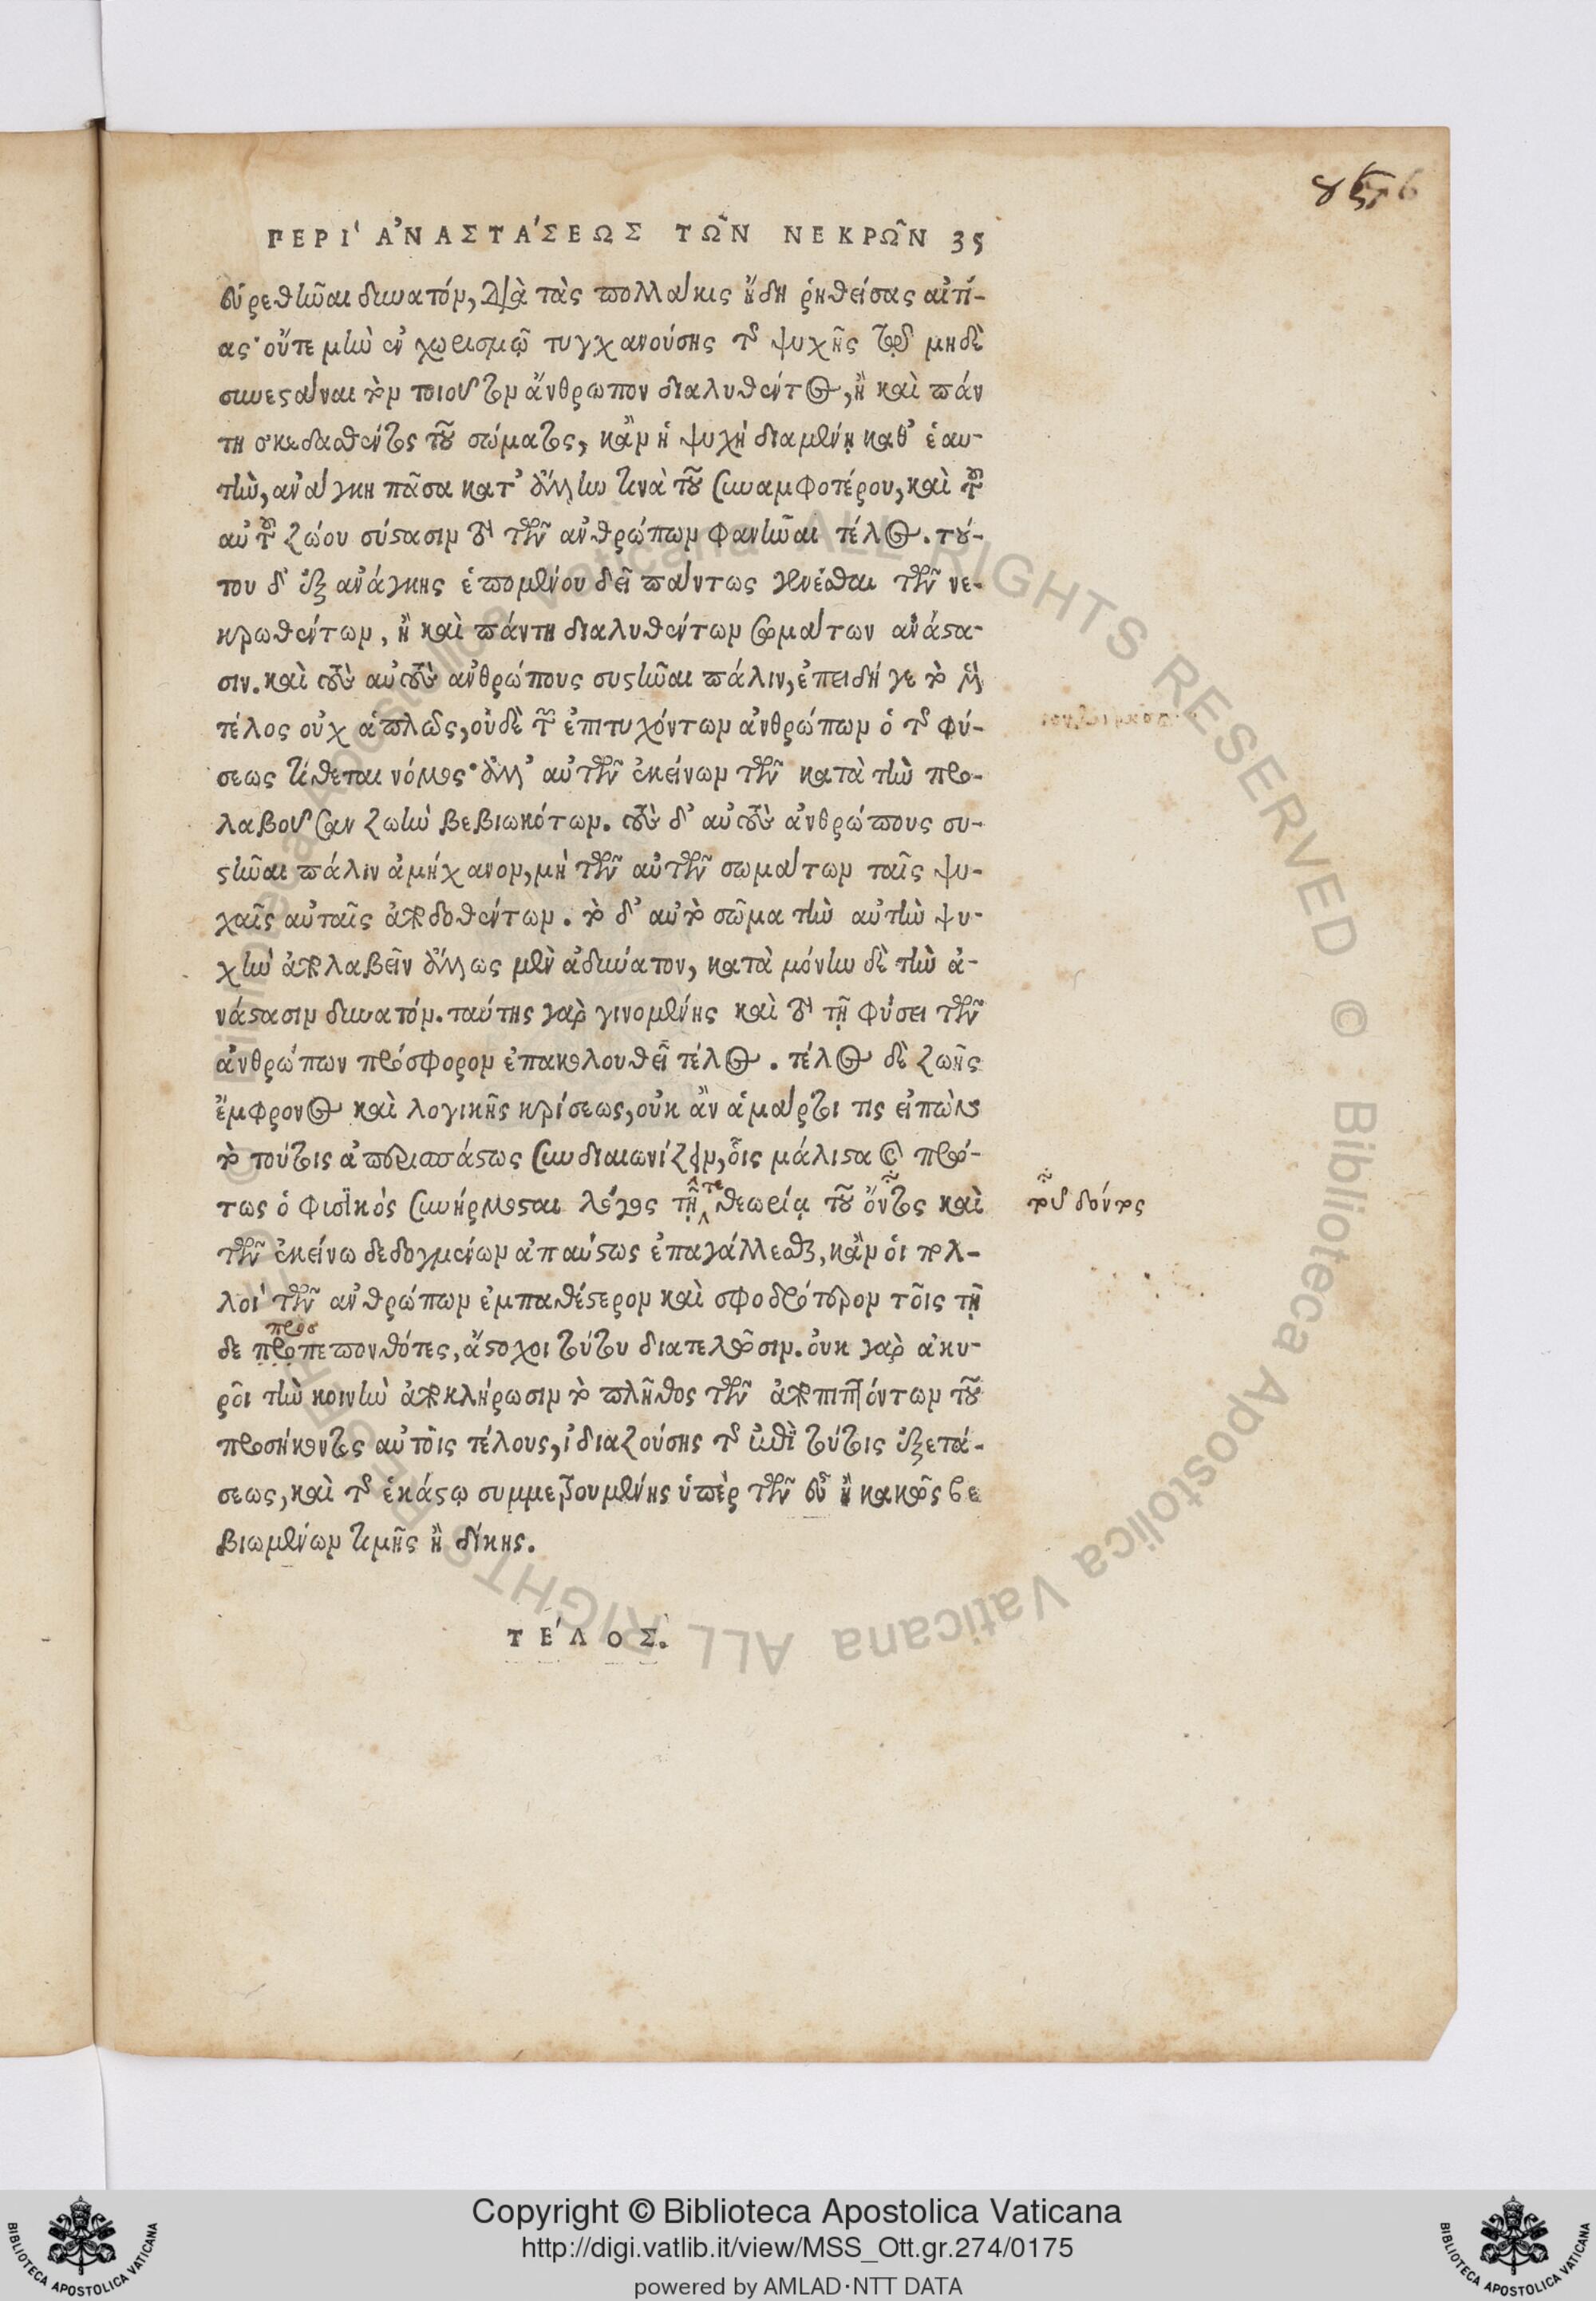 ΠΕΡΙ' Α᾿ΝΑΣΤΑ'ΣΕΩΣ ΤΩ͂Ν ΝΕΚΡΩ͂Ν 35
εὑρεθῆναι δυνατόν, διὰ τὰς πολλάκις ἤδη ῥηθείσας αἰτί-
ας· οὔτε μὴν ἐν χωρισμῷ τυγχανούσης τῆς ψυχῆς διὰ μηδὲ
συνεστάναι τὸν τοιοῦτον ἄνθρωπον διαλυθέντος, ἢ καὶ πάν
τη σκεδασθέντος τοῦ σώματος, κἂν ἡ ψυχὴ διαμένῃ καθ' ἑαυ-
τὴν, ἀνάγκη πᾶσα κατ' ἄλλην τινὰ τοῦ συναμφοτέρου, καὶ τοῦ
αὐτοῦ ζώου σύστασιν τὸ τῶν ἀνθρώπων φανῆναι τέλος. τού-
του δ' ἐξ ἀνάγκης ἑπομένου δεῖ πάντως γενέσθαι τῶν νε-
κρωθέντων, ἢ καὶ πάντη διαλυθέντων σωμάτων ἀνάστα-
σιν. καὶ τοὺς αὐτοὺς ἀνθρώπους συστῆναι πάλιν, ἐπειδή γε τὸ μὲν
τέλος οὐχ ἁπλῶς, οὐδὲ τῶν ἐπιτυχόντων ἀνθρώπων ὁ τῆς φύ-
σεως τίθεται νόμος· ἀλλ' αὐτῶν ἐκείνων τῶν κατὰ τὴν προ-
λαβοῦσαν ζωὴν βεβιωκότων. τοὺς δ' αὐτοὺς ἀνθρώπους συ-
στῆναι πάλιν ἀμήχανον, μὴ τῶν αὐτῶν σωμάτων ταῖς ψυ-
χαῖς αὐταῖς ἀποδοθέντων. τὸ δ' αὐτὸ σῶμα τὴν αὐτὴν ψυ-
χὴν ἀπολαβεῖν ἄλλως μὲν ἀδύνατον, κατὰ μόνην δὲ τὴν ἀ-
νάστασιν δυνατόν. ταύτης γὰρ γινομένης καὶ τὸ τῇ φύσει τῶν
ἀνθρώπων πρόσφορον ἐπακολουθεῖ τέλος. τέλος δὲ ζωῆς
ἔμφρονος καὶ λογικῆς κρίσεως, οὐκ ἂν ἁμάρτοι τις εἰπὼν
τὸ τούτοις ἀπερισπάστως συνδιαιωνίζειν, οἷς μάλιστα καὶ πρώ-
τως ὁ φισϊκὸς συνήρμοσται λόγος τῇ τε θεωρίᾳ τοῦ ὄντος καὶ
τῶν ἐκείνω δεδογμένων ἀπαύστως ἐπαγάλλεσθαι, κἂν οἱ πολ-
λοὶ τῶν ἀνθρώπων ἐμπαθέστερον καὶ σφοδρότερον τοῖς τῇ
προσ
δε προπεπονθότες, ἄστοχοι τούτου διατελῶσιν. οὐκ γὰρ ἀκυ-
ροῖ τὴν κοινὴν ἀποκλήρωσιν τὸ πλῆθος τῶν ἀποπιπτόντων τοῦ
προσήκοντος αὐτοῖς τέλους, ἰδιαζούσης τῆς ἐπὶ τούτοις ἐξετά-
σεως, καὶ τῆς ἑκάστῳ συμμετρουμένης ὑπὲρ τῶν εὖ ἢ κακῶς βε
βιωμένων τιμῆς ἢ δίκης.
ΤΕ'ΛΟΣ.
τοῦ δόντος
Copyright © Biblioteca Apostolica Vaticana
http://digi.vatlib.it/view/MSS_Ott.gr.274/0175
powered by AMLAD·NTT DATA
BIBLIOTECA APOSTOLICA VATICANA
BIBLIOTECA APOSTOLICA VATICANA
© Biblioteca Apostolica Vaticana ALL RIGHTS RESERVED © Biblioteca Apostolica Vaticana ALL RIGHTS RESERVED